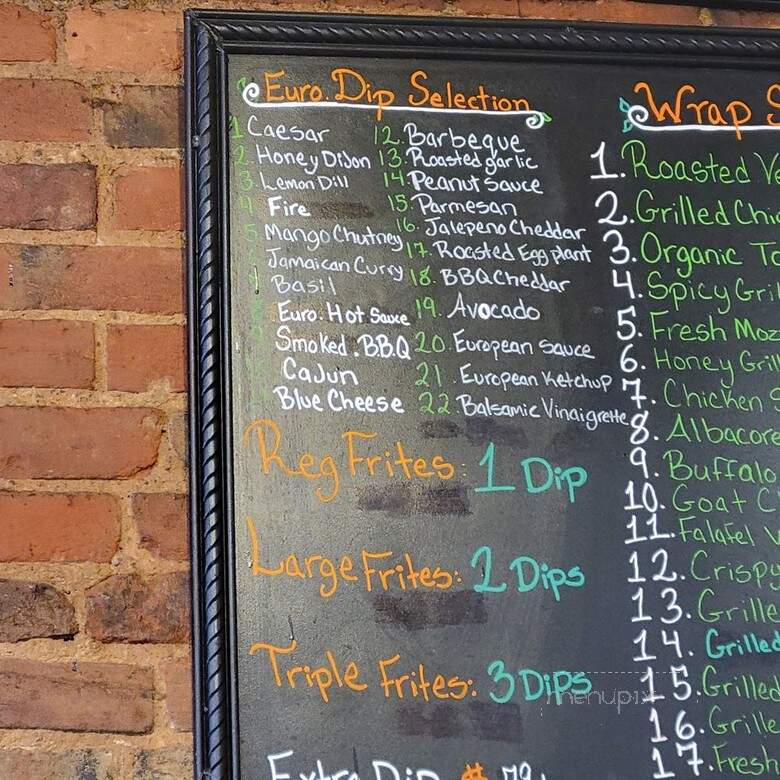 Euro. Dip Selection
1 Caesar
2. Honey Dijon
3. Lemon Dill
4 Fire
5 Mango Chutney
Jamaican Curry
Basil
Euro. Hot Sauce
Smoked .B.B.Q
Cajun
Blue Cheese
12. Barbeque
13. Roasted garlic
14. Peanut sauce
15. Parmesan
16. Jalepeno Cheddar
17. Roasted Egg plant
18. BBQ Cheddar
19. Avocado
20. European sauce
21. European Ketchup
22. Balsamic Vinaigrette
Reg Frites: 1 Dip
Large Frites: 2 Dips
Triple Frites: 3 Dips
Extra Dip
Wrap S
1. Roasted Ve
2. Grilled Chi
3. Organic To
4. Spicy Gril
5. Fresh Moz
6. Honey Gril
7. Chicken S
8. Albacore
9. Buffalo
10. Goat C
11. Falafel
12. Crispy
13. Grille
14. Grilled
15. Grilled
16. Grille
17. Fresh
menupix